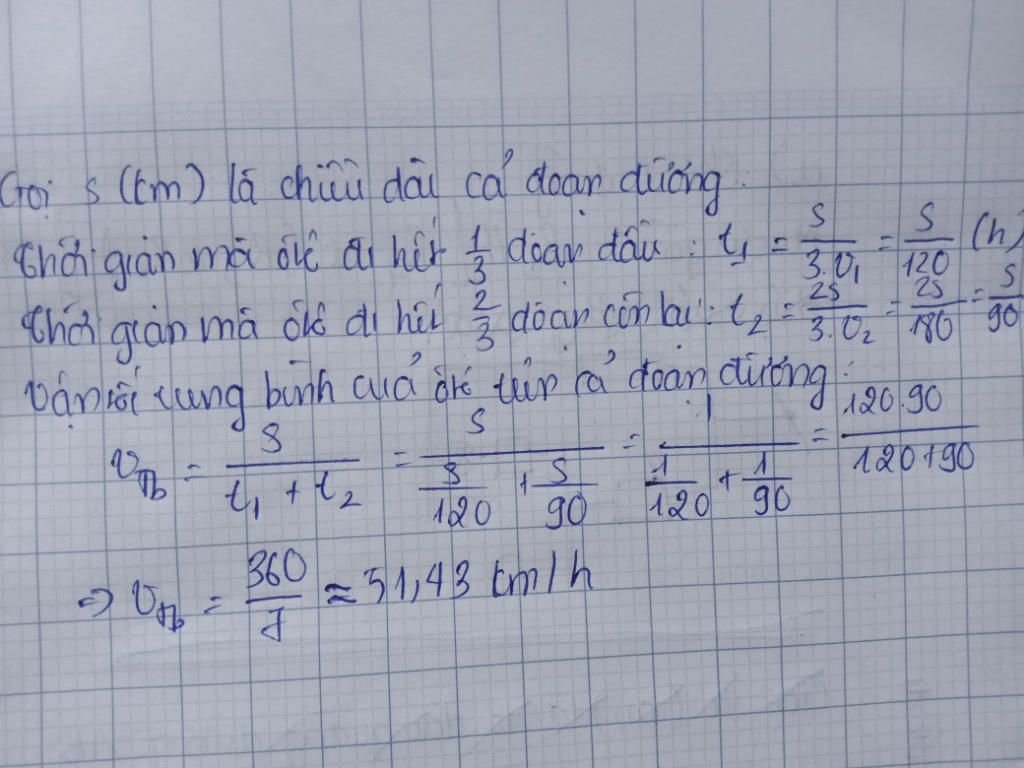 Gọi s (km) là chiều dài cả đoạn đường.
Thời gian mà ôtô đi hết 1/3 đoạn đầu : t₁ = s/(3.v₁) = s/120 (h)
Thời gian mà ôtô đi hết 2/3 đoạn còn lại : t₂ = 2s/(3.v₂) = 2s/180 = s/90
Vận tốc trung bình của ôtô trên cả đoạn đường :
v_tb = s/(t₁ + t₂) = s/(s/120 + s/90) = 1/(1/120 + 1/90) = 120.90/(120+90)
=> v_tb = 360/7 ≈ 51,43 km/h